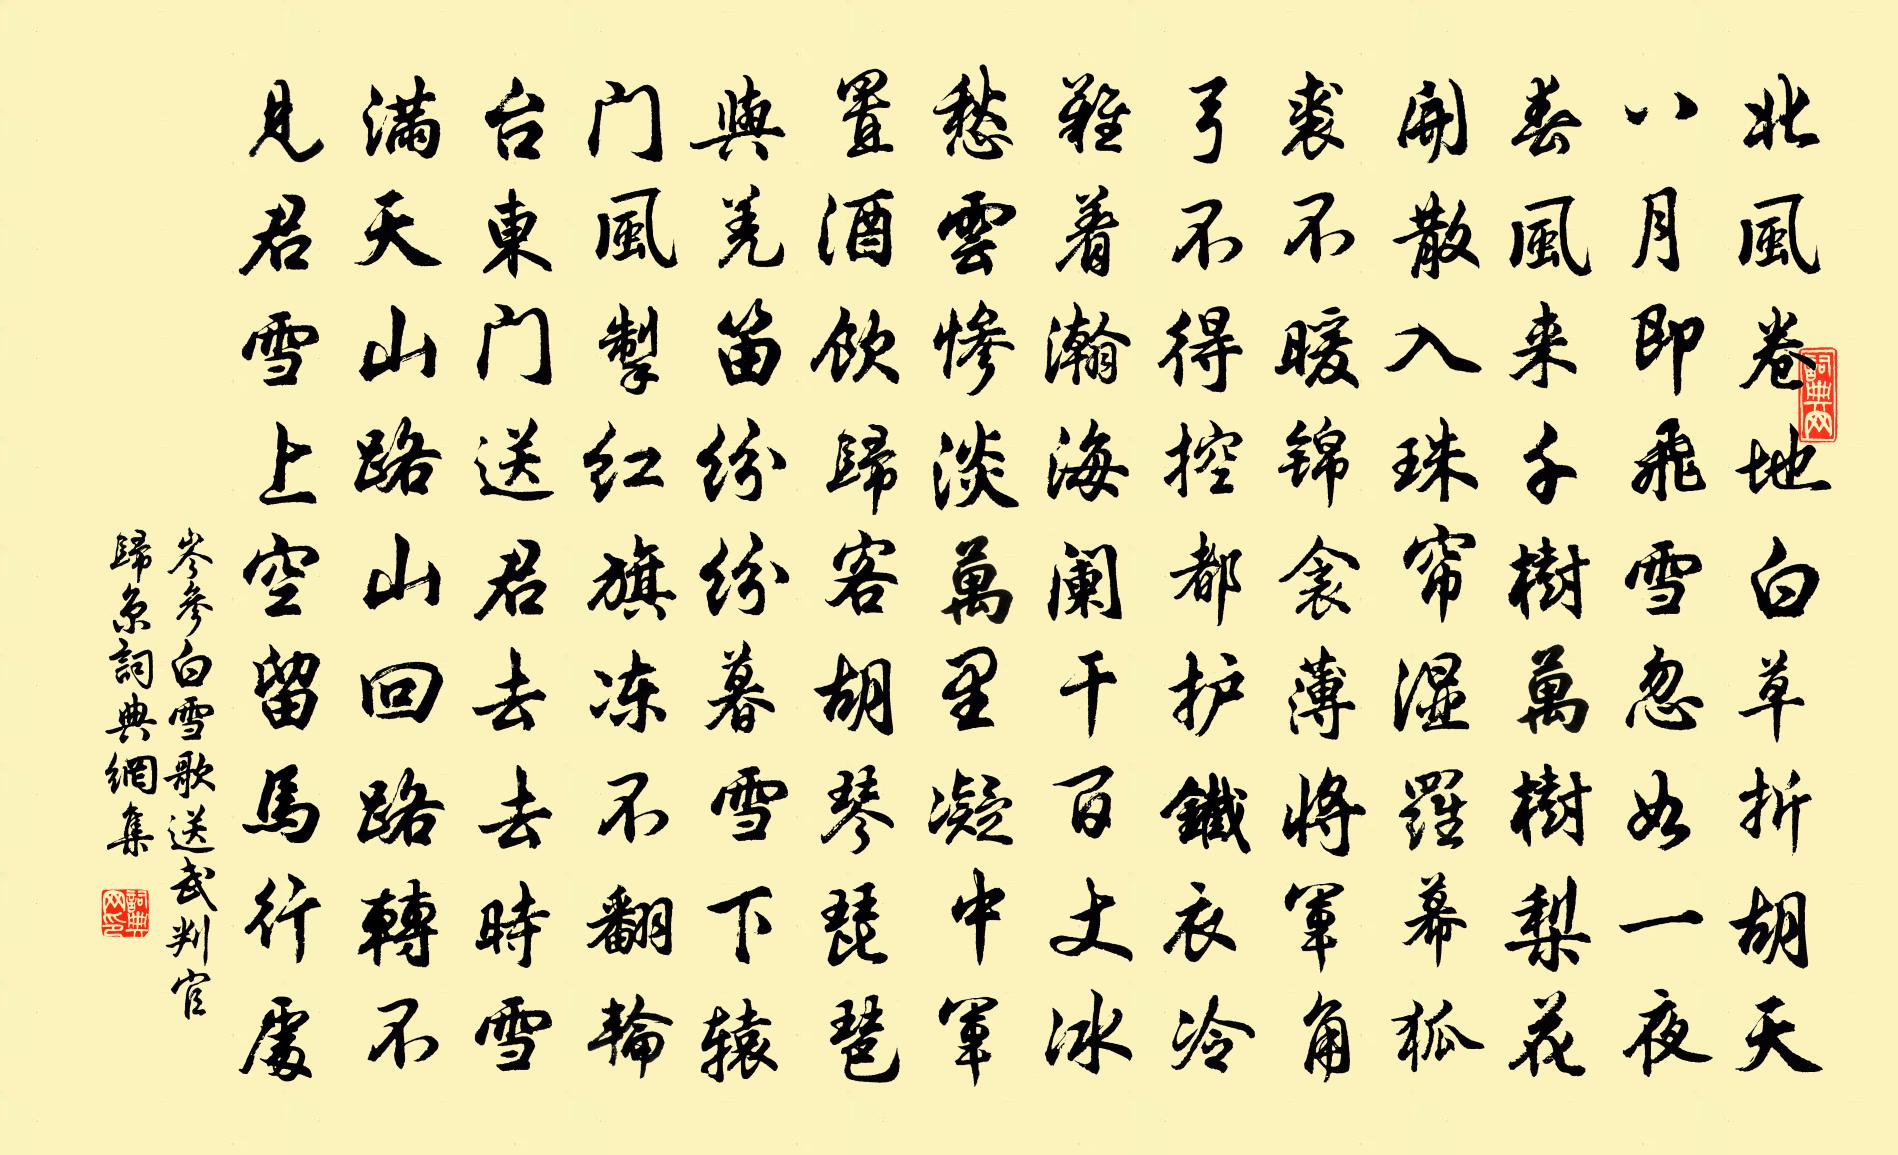 北風卷地白草折胡天
八月即飛雪忽如一夜
春風来千樹萬樹梨花
開散入珠帘濕羅幕狐
裘不暖锦衾薄將軍角
弓不得控都护鐵衣冷
難着瀚海阑干百丈冰
愁雲慘淡萬里凝中軍
置酒飲歸客胡琴琵琶
與羌笛紛紛暮雪下辕
門風掣红旗冻不翻輪
台東門送君去去時雪
满天山路山回路轉不
見君雪上空留馬行處
岑參白雪歌送武判官
歸京詞典網集
詞典网
詞典网印